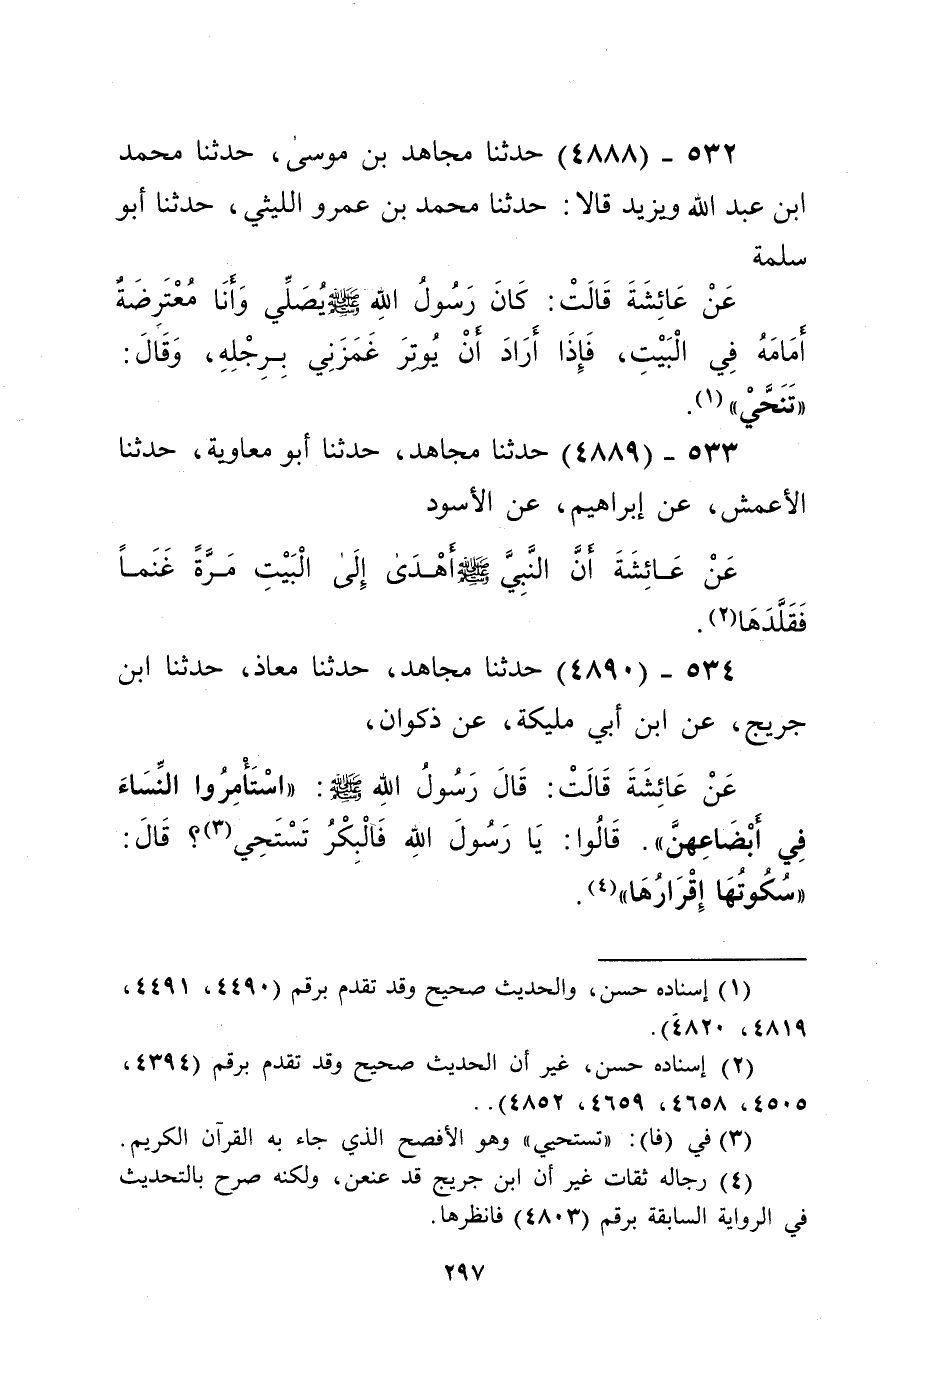 ٥٣٢ ـ (٤٨٨٨) حدثنا مجاهد بن موسىٰ، حدثنا محمد
ابن عبد الله ويزيد قالا: حدثنا محمد بن عمرو الليثي، حدثنا أبو
سلمة
عَنْ عَائِشَةَ قَالَتْ: كَانَ رَسُولُ اللهِ ﷺ يُصَلِّي وَأَنَا مُعْتَرِضَةٌ
أَمَامَهُ فِي الْبَيْتِ، فَإِذَا أَرَادَ أَنْ يُوتِرَ غَمَزَنِي بِرِجْلِهِ، وَقَالَ:
«تَنَحَّيْ»(١).
٥٣٣ ـ (٤٨٨٩) حدثنا مجاهد، حدثنا أبو معاوية، حدثنا
الأعمش، عن إبراهيم، عن الأسود
عَنْ عَائِشَةَ أَنَّ النَّبِيَّ ﷺ أَهْدَىٰ إِلَىٰ الْبَيْتِ مَرَّةً غَنَماً
فَقَلَّدَهَا(٢).
٥٣٤ ـ (٤٨٩٠) حدثنا مجاهد، حدثنا معاذ، حدثنا ابن
جريج، عن ابن أبي مليكة، عن ذكوان،
عَنْ عَائِشَةَ قَالَتْ: قَالَ رَسُولُ اللهِ ﷺ: «اسْتَأْمِرُوا النِّسَاءَ
فِي أَبْضَاعِهِنَّ». قَالُوا: يَا رَسُولَ اللهِ فَالْبِكْرُ تَسْتَحِي(٣)؟ قَالَ:
«سُكُوتُهَا إِقْرَارُهَا»(٤).
(١) إسناده حسن، والحديث صحيح وقد تقدم برقم (٤٤٩٠، ٤٤٩١،
٤٨١٩، ٤٨٢٠).
(٢) إسناده حسن، غير أن الحديث صحيح وقد تقدم برقم (٤٣٩٤،
٤٥٠٥، ٤٦٥٨، ٤٦٥٩، ٤٨٥٢)..
(٣) في (فا): «تستحيي» وهو الأفصح الذي جاء به القرآن الكريم.
(٤) رجاله ثقات غير أن ابن جريج قد عنعن، ولكنه صرح بالتحديث
في الرواية السابقة برقم (٤٨٠٣) فانظرها.
٢٩٧